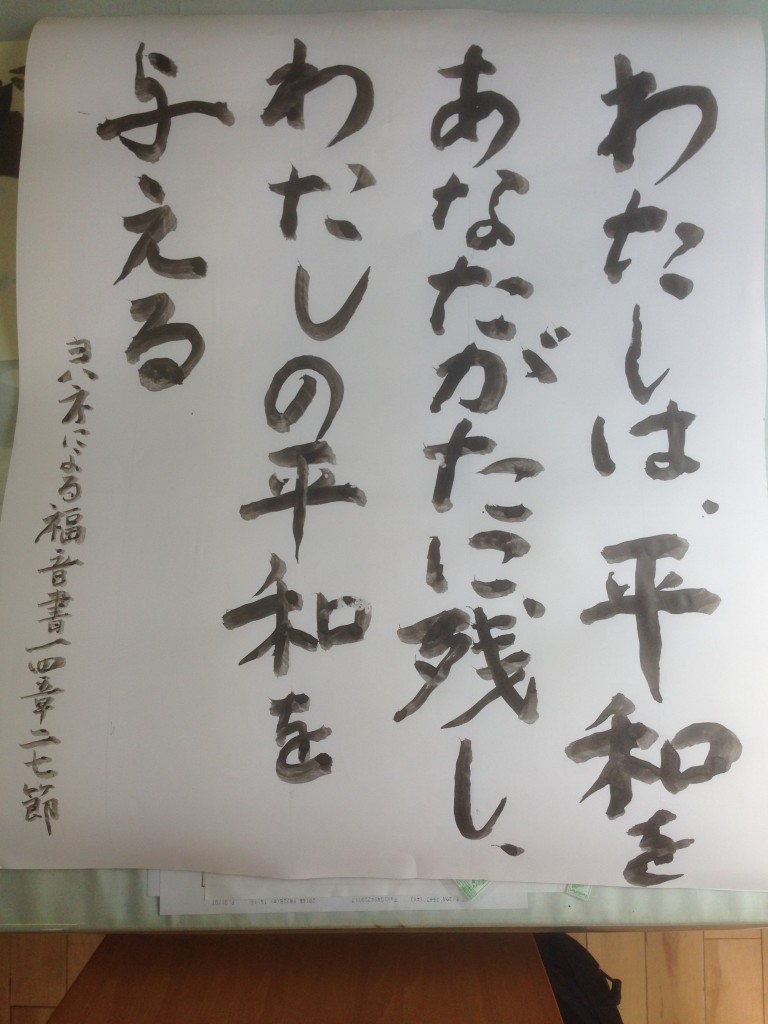 わたしは、平和を
あなたがたに残し、
わたしの平和を
与える
ヨハネによる福音書一四章二七節